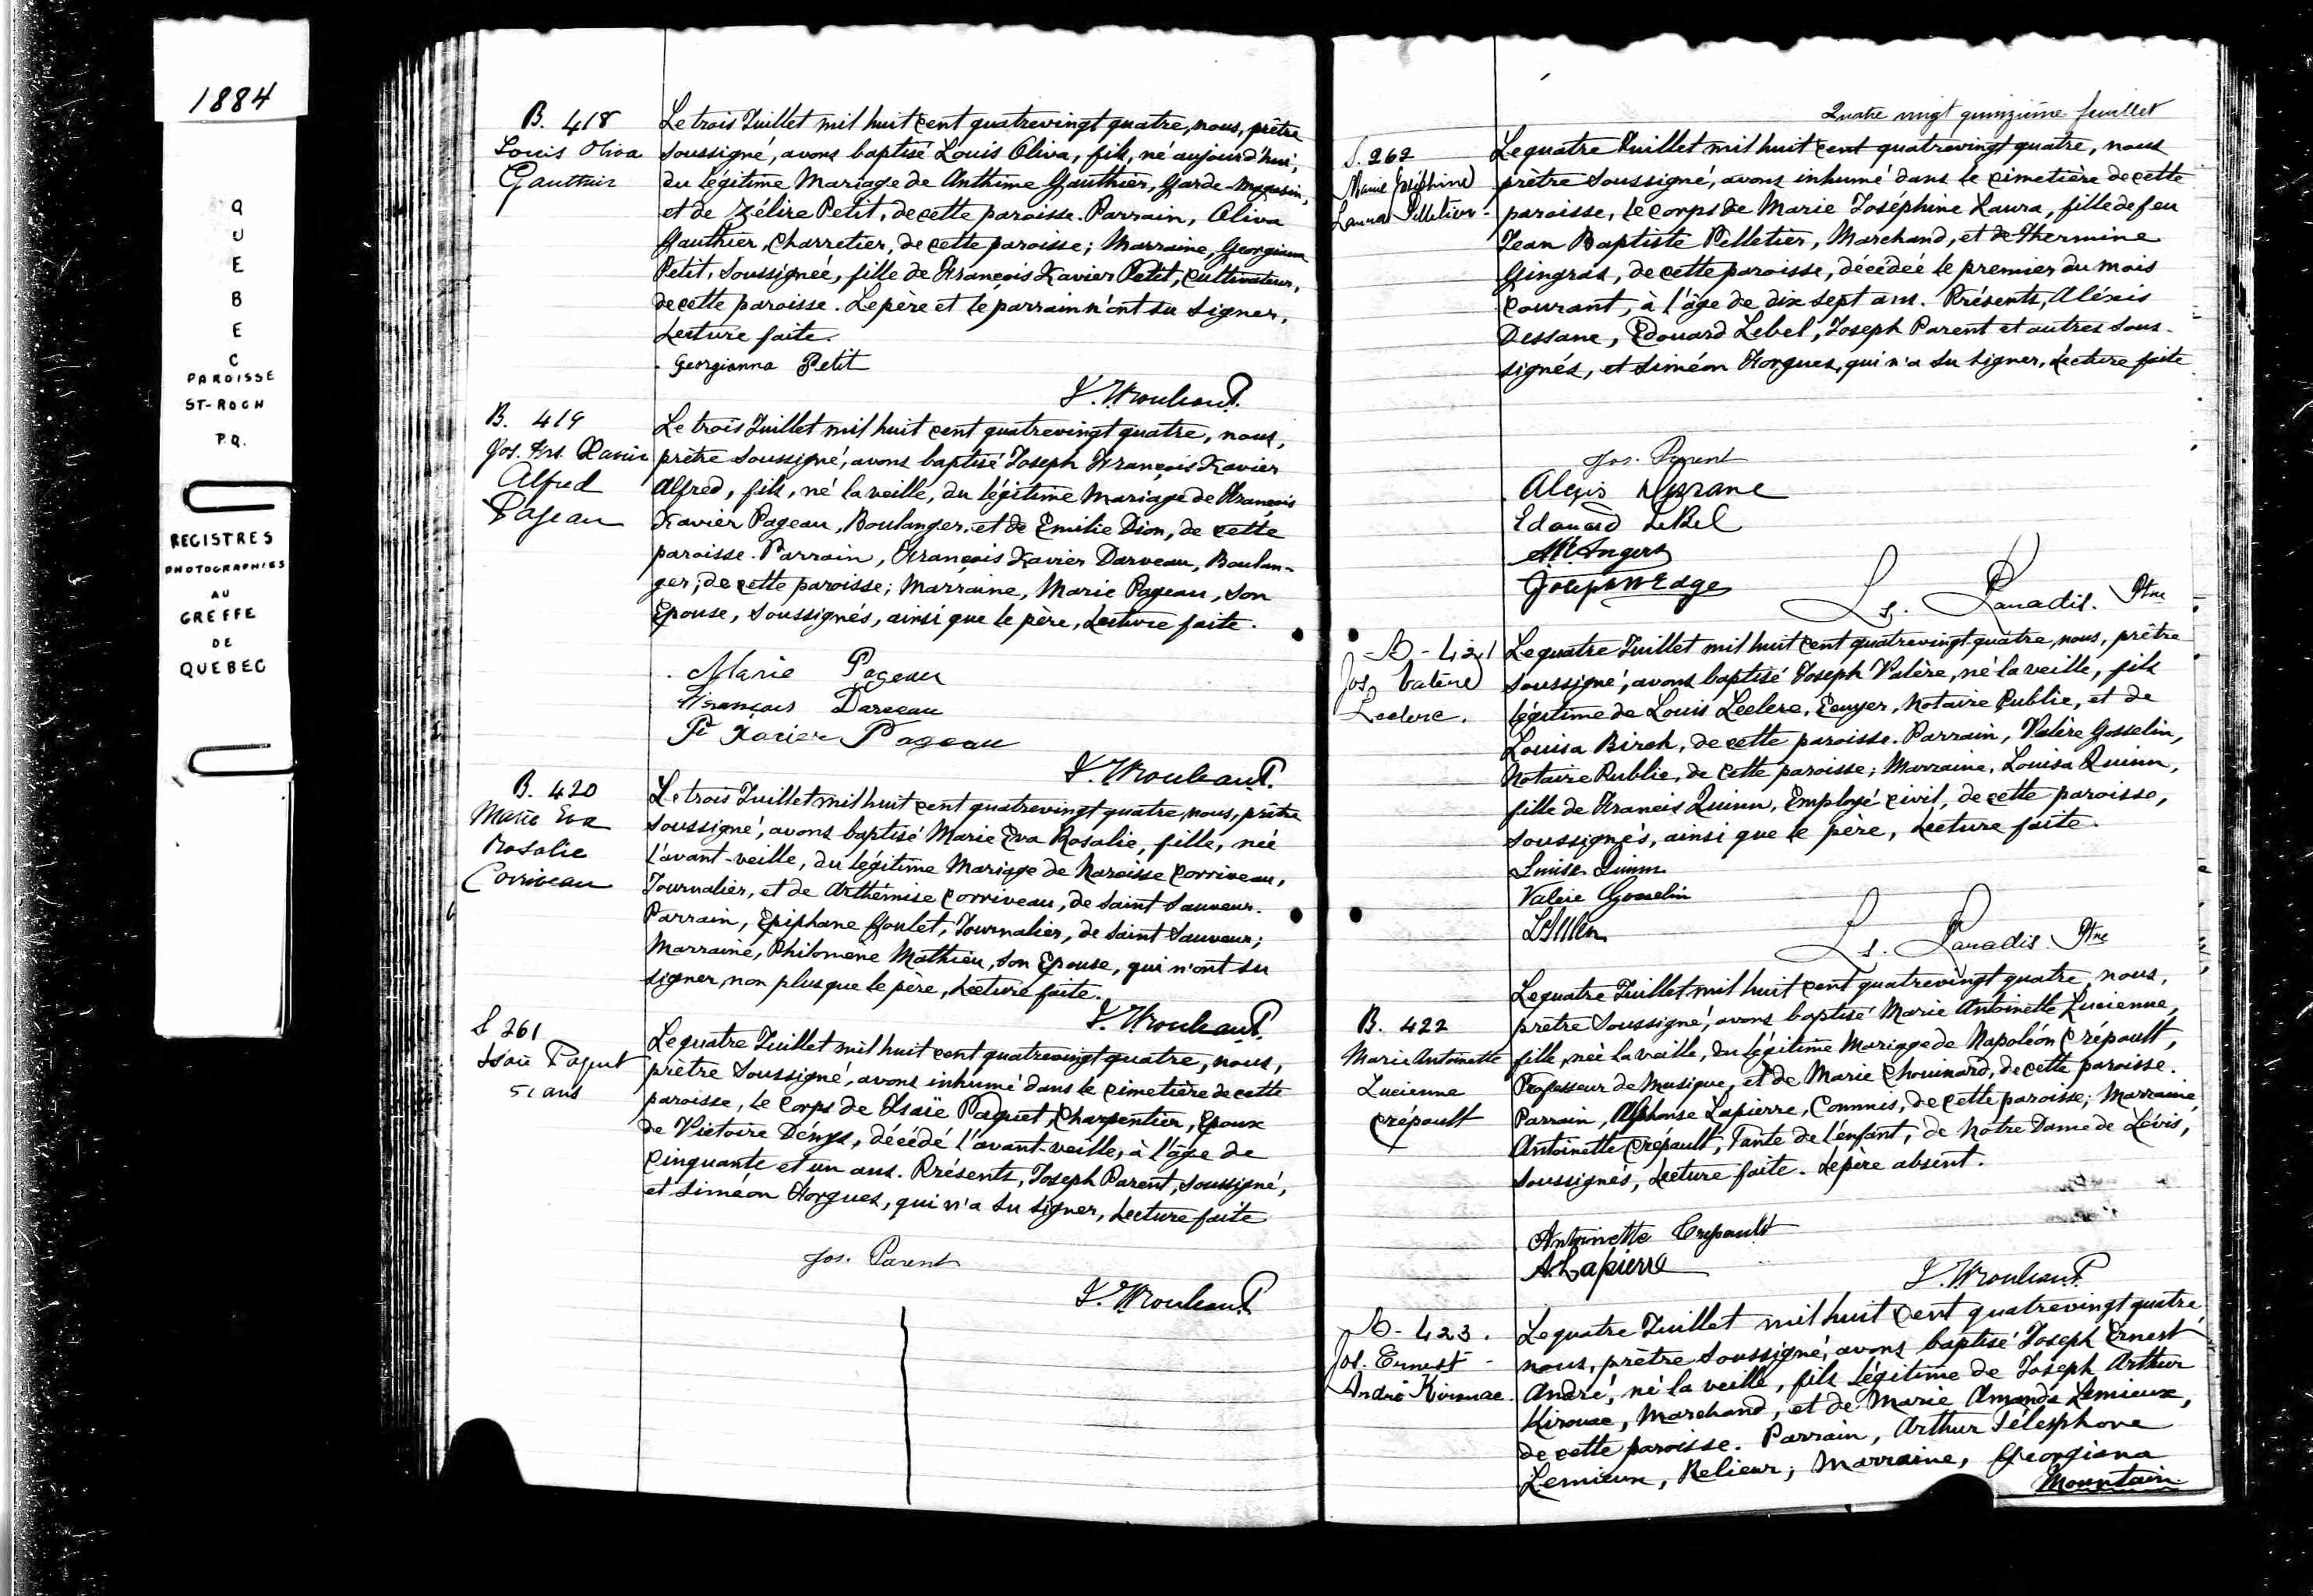 1884
Q
U
E
B
E
C
PAROISSE
ST-ROCH
P.Q.
REGISTRES
PHOTOGRAPHIES
AU
GREFFE
DE
QUEBEC
B. 418
Louis Oliva
Gauthier
Le trois Juillet mil huit cent quatrevingt quatre, nous, prêtre
soussigné, avons baptisé Louis Oliva, fils, né aujourd'hui,
du légitime Mariage de Anthime Gauthier, Garde-Magasin,
et de Zélire Petit, de cette paroisse. Parrain, Oliva
Gauthier, Charretier, de cette paroisse; Marraine, Georgiana
Petit, soussignée, fille de François Xavier Petit, Cultivateur,
de cette paroisse. Le père et le parrain n'ont su signer,
Lecture faite.
Georgianna Petit
B. 419
Jos. Frs. Xavier
Alfred
Pageau
Le trois Juillet mil huit cent quatrevingt quatre, nous,
prêtre soussigné, avons baptisé Joseph François Xavier
Alfred, fils, né la veille, du légitime Mariage de François
Xavier Pageau, Boulanger, et de Emilie Dion, de cette
paroisse. Parrain, François Xavier Darveau, Boulan-
ger, de cette paroisse; Marraine, Marie Pageau, son
Epouse, soussignés, ainsi que le père, Lecture faite.
Marie Pageau
François Darveau
Fr Xavier Pageau
B. 420
Marie Eva
Rosalie
Corriveau
Le trois Juillet mil huit cent quatrevingt quatre, nous, prêtre
soussigné, avons baptisé Marie Eva Rosalie, fille, née
l'avant-veille, du légitime Mariage de Narcisse Corriveau,
Journalier, et de Arthémise Corriveau, de Saint Sauveur.
Parrain, Epiphane Goulet, Journalier, de Saint Sauveur;
Marraine, Philomène Mathieu, son Epouse, qui n'ont su
signer, non plus que le père, Lecture faite.
S 261
Isaïe Paquet
51 ans
Le quatre Juillet mil huit cent quatrevingt quatre, nous,
prêtre soussigné, avons inhumé dans le cimetière de cette
paroisse, le corps de Isaïe Paquet, Charpentier, Epoux
de Victoire Dénys, décédé l'avant-veille, à l'âge de
Cinquante et un ans. Présents, Joseph Parent, soussigné,
et Siméon Forgues, qui n'a su signer, Lecture faite
Jos. Parent
Quatre vingt quinzième feuillet
S. 262
Marie Joséphine
Laura Pelletier -
Le quatre Juillet mil huit cent quatrevingt quatre, nous
prêtre soussigné, avons inhumé dans le cimetière de cette
paroisse, le corps de Marie Joséphine Laura, fille de feu
Jean Baptiste Pelletier, Marchand, et de Hermine
Gingras, de cette paroisse, décédée le premier du mois
Courant, à l'âge de dix sept ans. Présents, Aléxis
Dessane, Edouard Lebel, Joseph Parent et autres sous-
signés, et Siméon Forgues, qui n'a su signer, Lecture faite
Jos. Parent
Alexis Dessane
Edouard LeBel
Angers
Ls. Paradis. Ptre
B - 421
Jos. Valère
Leclerc.
Le quatre Juillet mil huit cent quatrevingt-quatre, nous, prêtre
soussigné, avons baptisé Joseph Valère, né la veille, fils
légitime de Louis Leclerc, Ecuyer, Notaire Public, et de
Louisa Birch, de cette paroisse. Parrain, Valère Gosselin,
Notaire Public, de cette paroisse; Marraine, Louisa Quinn,
fille de Francis Quinn, Employé civil, de cette paroisse,
soussignés, ainsi que le père, Lecture faite.
Louisa Quinn
Valère Gosselin
Ls. Paradis. Ptre
B. 422
Marie Antoinette
Lucienne
Crépault
Le quatre Juillet mil huit cent quatrevingt quatre, nous,
prêtre soussigné, avons baptisé Marie Antoinette Lucienne,
fille, née la veille, du légitime Mariage de Napoléon Crépault,
Professeur de Musique, et de Marie Chouinard, de cette paroisse.
Parrain, Alphonse Lapierre, Commis, de cette paroisse; Marraine
Antoinette Crépault, Tante de l'enfant, de Notre Dame de Lévis,
soussignés, Lecture faite. Le père absent.
Antoinette Crepault
A. Lapierre
B - 423.
Jos. Ernest -
André Kirouac.
Le quatre Juillet mil huit cent quatrevingt quatre,
nous, prêtre soussigné, avons baptisé Joseph Ernest
André, né la veille, fils légitime de Joseph Arthur
Kirouac, Marchand, et de Marie Amanda Lemieux,
de cette paroisse. Parrain, Arthur Télesphore
Lemieux, Relieur; Marraine, Georgiana
Mountain